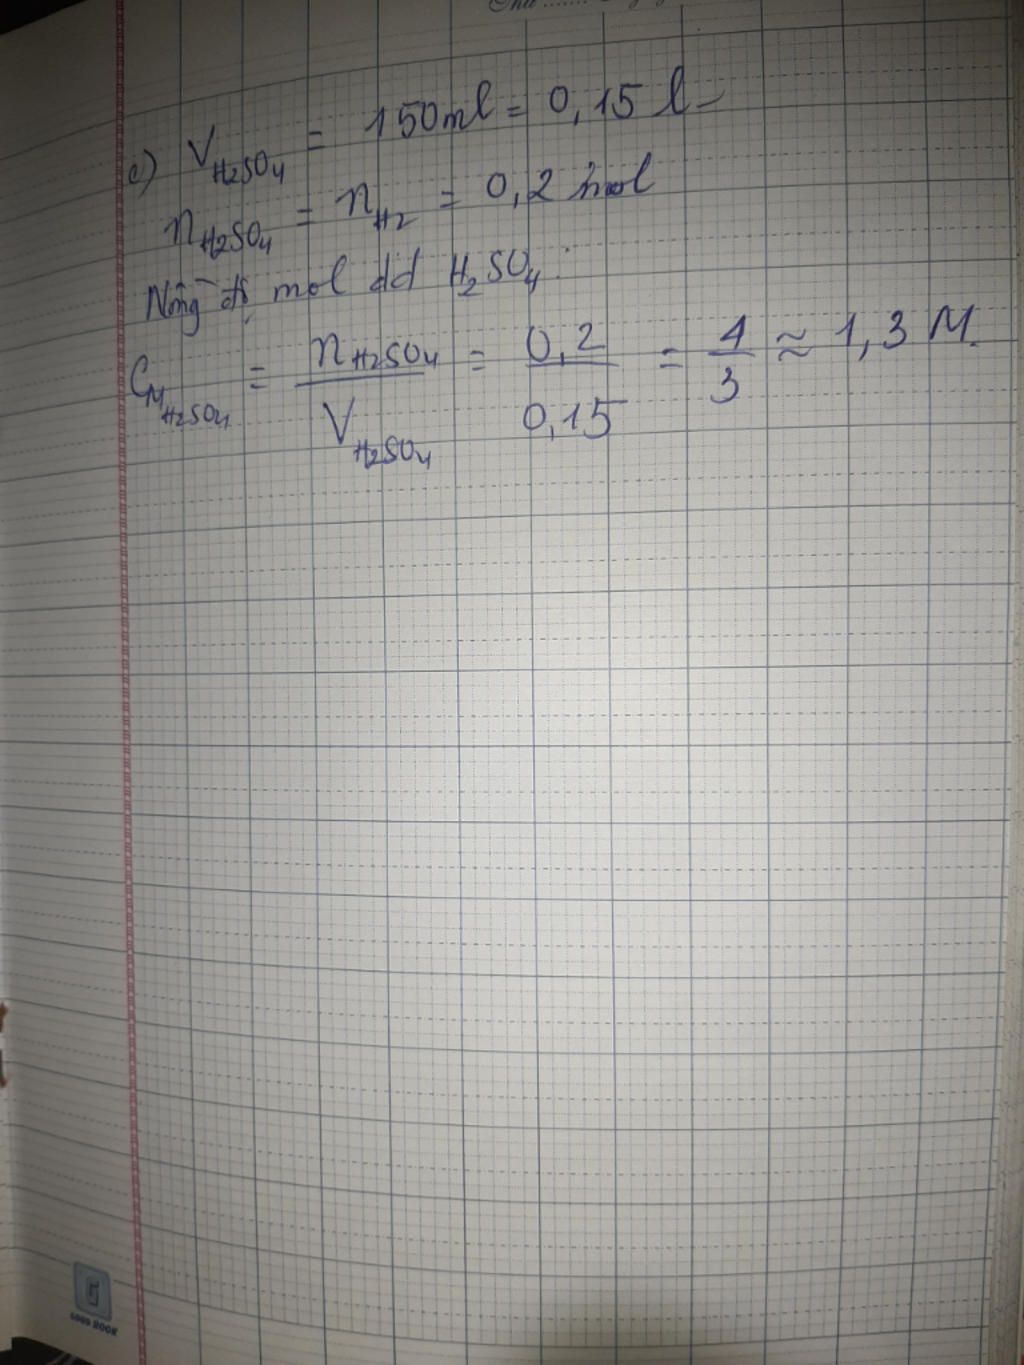 c) V H₂SO₄ = 150ml = 0,15 l
n H₂SO₄ = n H₂ = 0,2 mol
Nồng độ mol dd H₂SO₄:
C M H₂SO₄ = n H₂SO₄ / V H₂SO₄ = 0,2 / 0,15 = 4 / 3 ≈ 1,3 M.